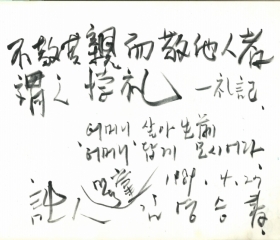 不敬其親而敬他人者
謂之悖礼 — 礼記
어머니 살아 生前
어머니 답게 모시어라
1989. 4. 27
詩人 김 승